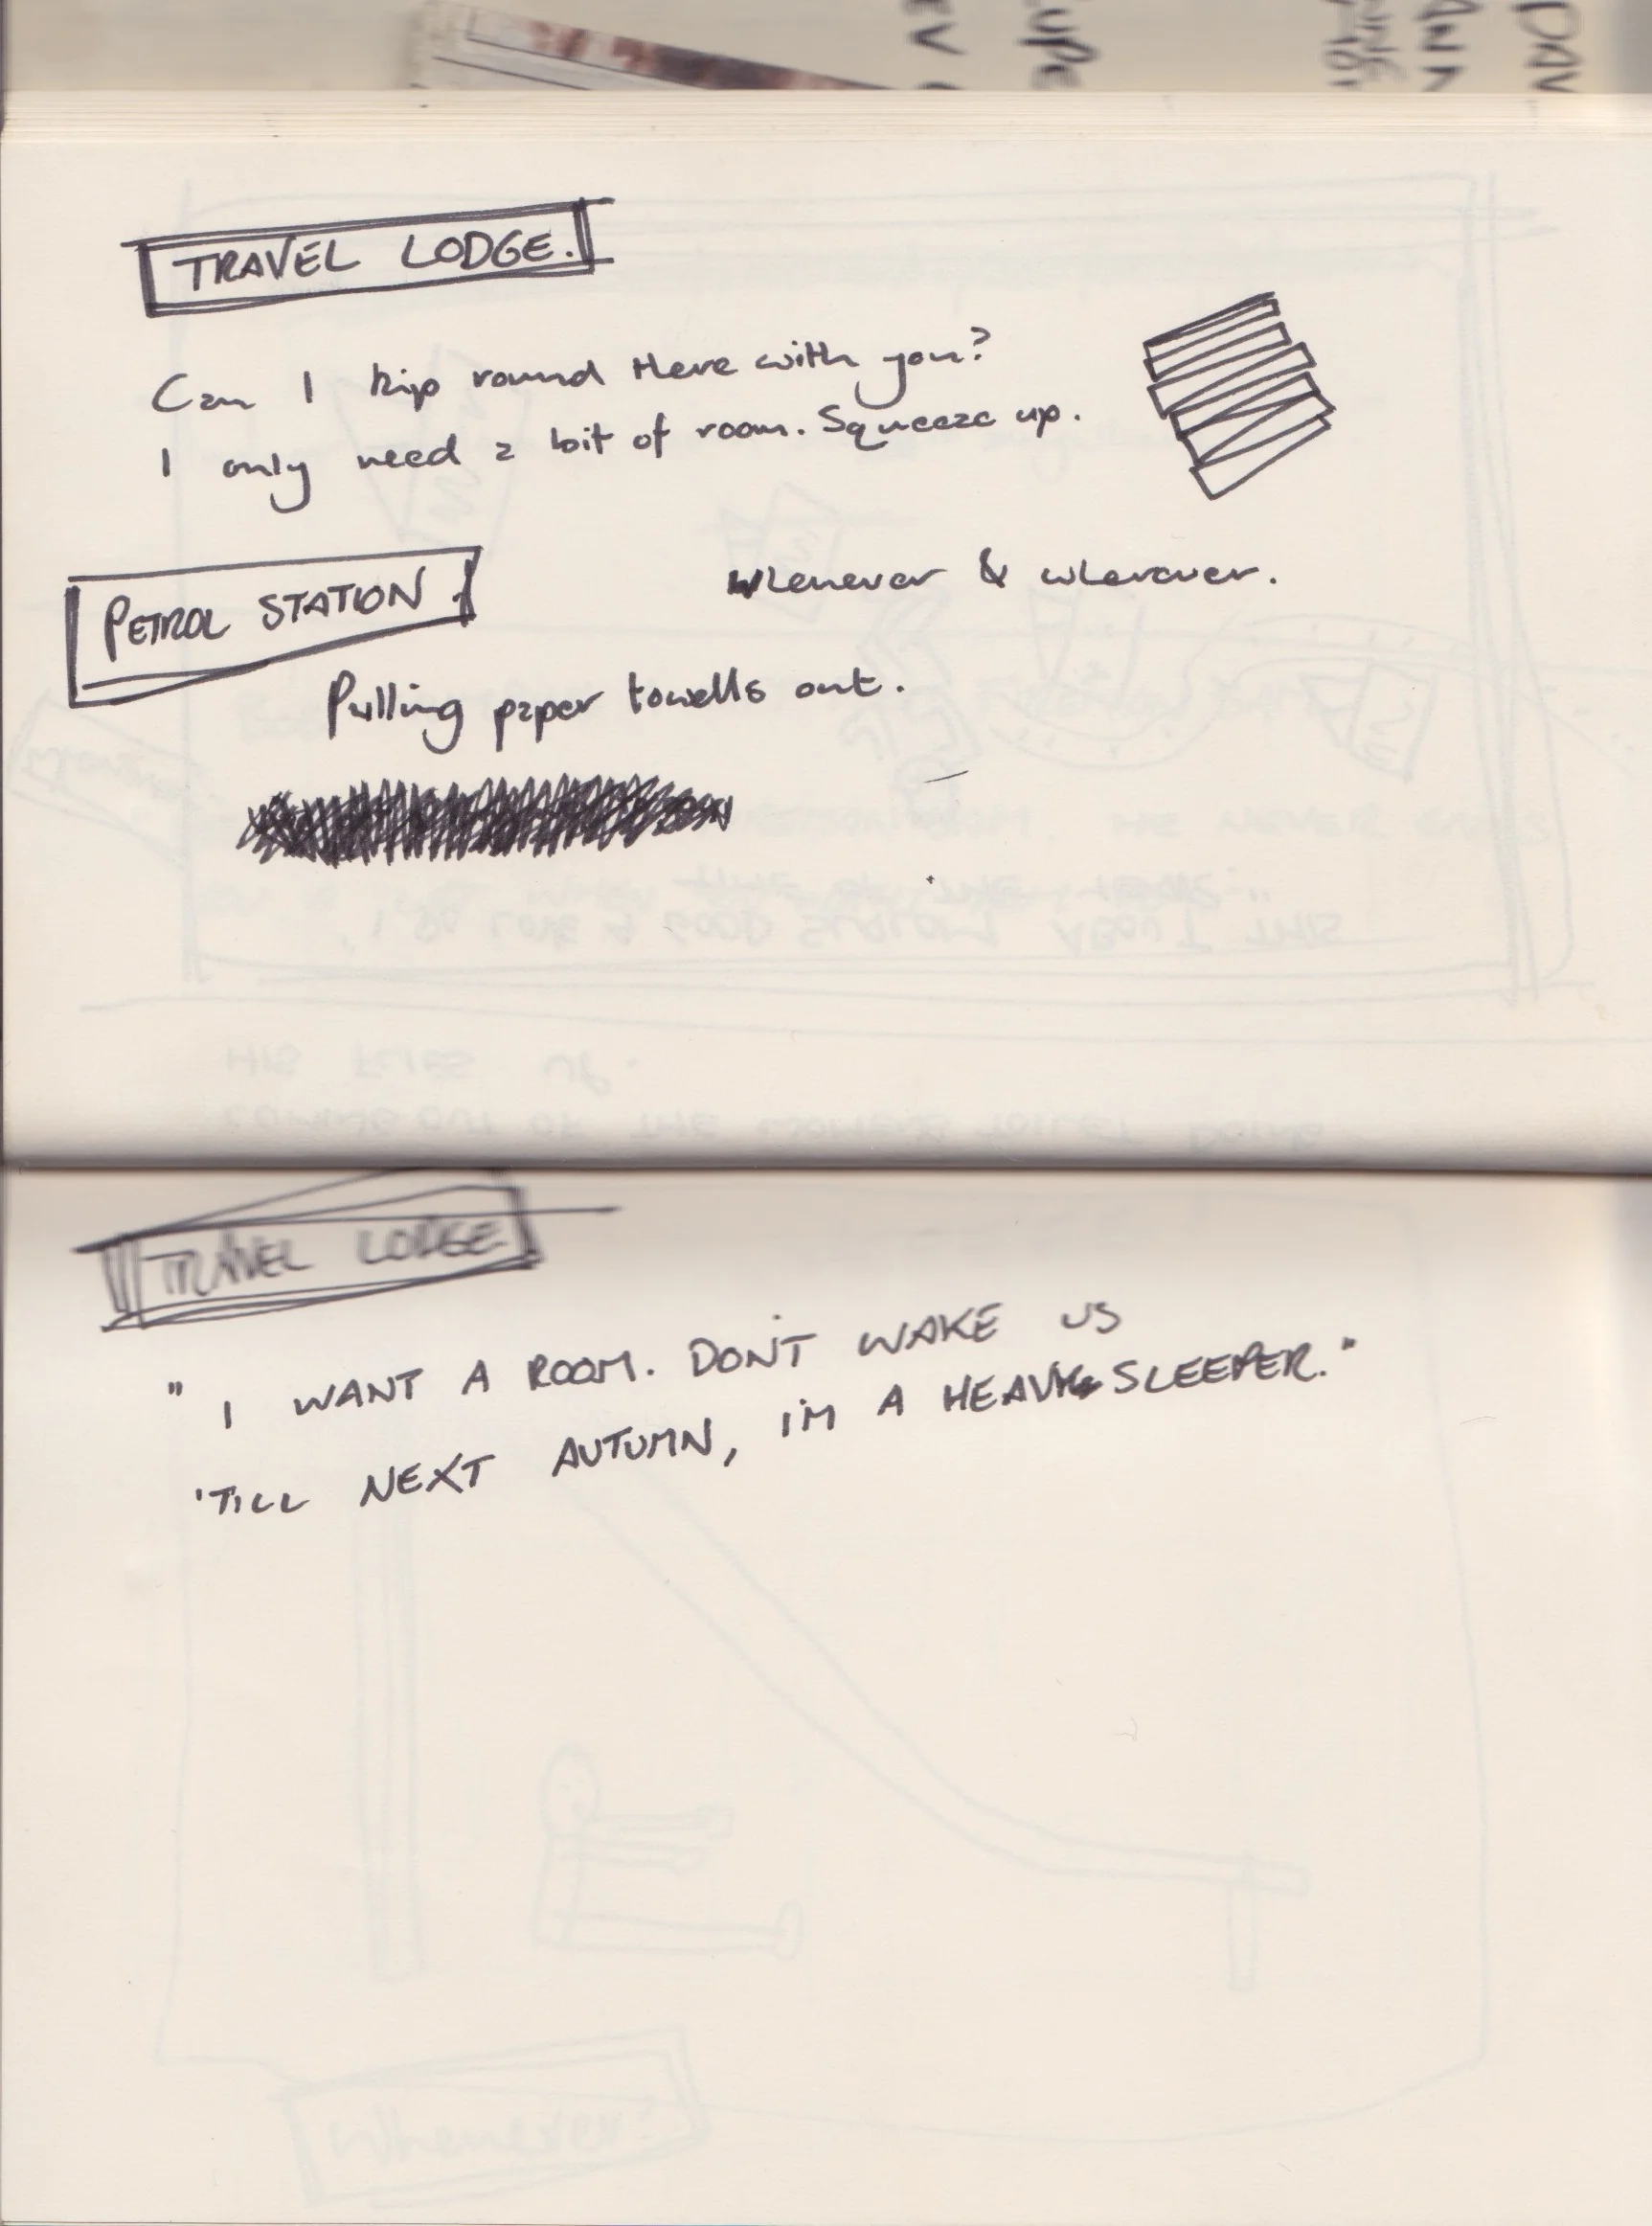 TRAVEL LODGE.
Can I kip round there with you?
I only need a bit of room. Squeeze up.
PETROL STATION.
Whenever & wherever.
Pulling paper towells out.
TRAVEL LODGE
" I WANT A ROOM. DON'T WAKE US
'TILL NEXT AUTUMN, I'M A HEAVY SLEEPER."